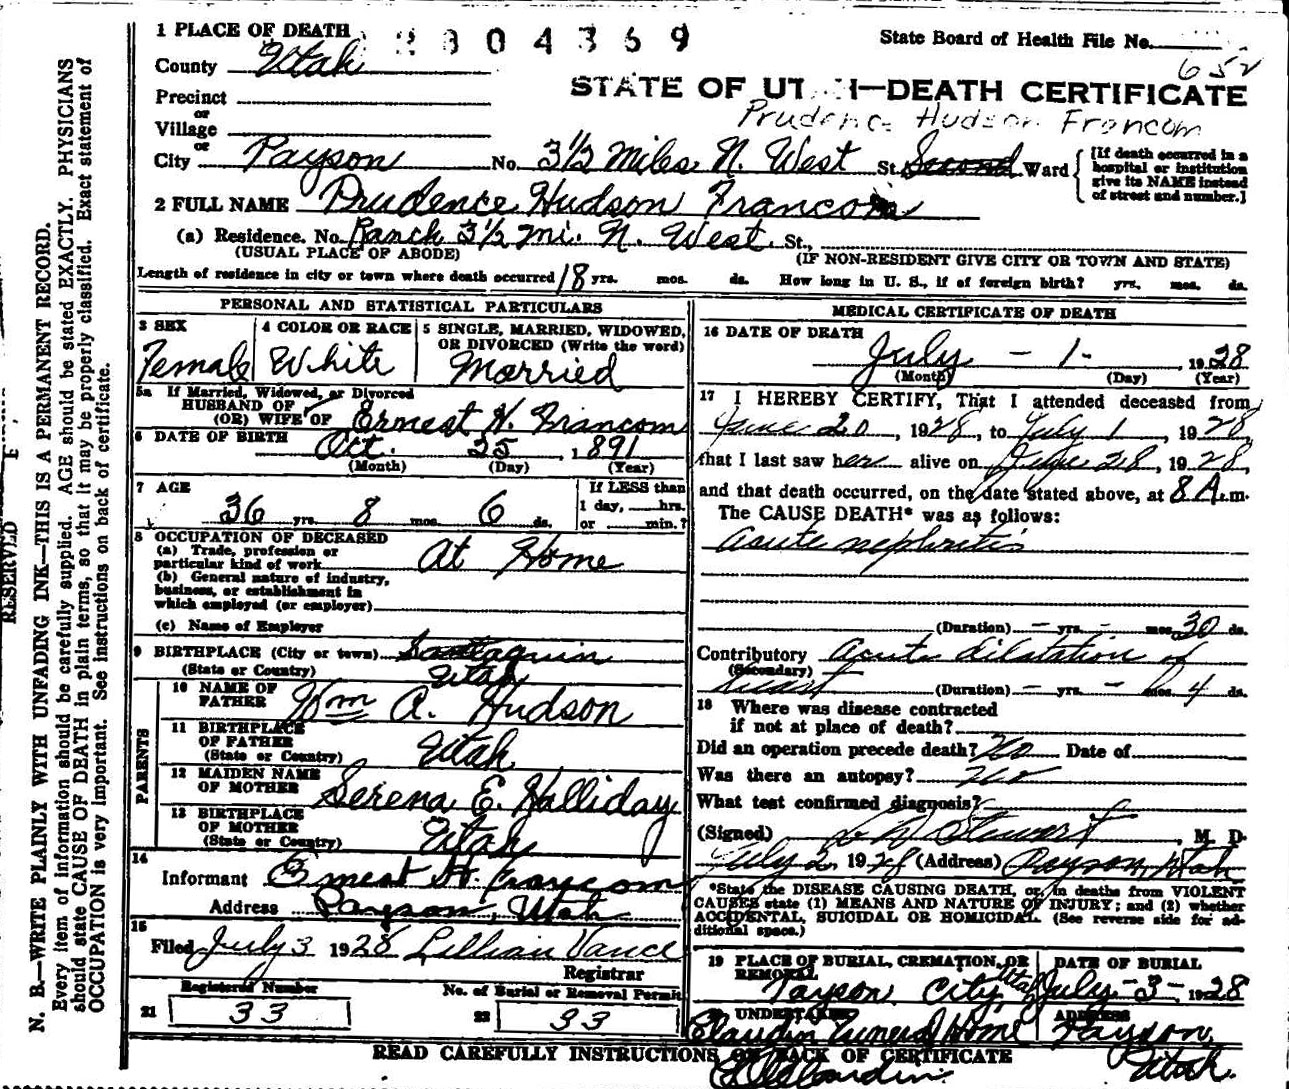 1 PLACE OF DEATH 2804369
State Board of Health File No. 652
County Utah
STATE OF UTAH—DEATH CERTIFICATE
Precinct
or
Prudence Hudson Francom
Village
or
City Payson No. 3 1/2 Miles N. West St. Second Ward
[If death occurred in a
hospital or institution
give its NAME instead
of street and number.]
2 FULL NAME Prudence Hudson Francom
(a) Residence. No. Ranch 3 1/2 mi. N. West St.,
(USUAL PLACE OF ABODE) (IF NON-RESIDENT GIVE CITY OR TOWN AND STATE)
Length of residence in city or town where death occurred 18 yrs. mos. ds. How long in U. S., if of foreign birth? yrs. mos. ds.
PERSONAL AND STATISTICAL PARTICULARS
3 SEX
Female
4 COLOR OR RACE
White
5 SINGLE, MARRIED, WIDOWED,
OR DIVORCED (Write the word)
Married
5a If Married, Widowed, or Divorced
HUSBAND OF
(OR) WIFE OF Ernest H. Francom
6 DATE OF BIRTH Oct. 25, 1891
(Month) (Day) (Year)
7 AGE
36 yrs. 8 mos. 6 ds.
If LESS than
1 day, hrs.
or min.?
8 OCCUPATION OF DECEASED
(a) Trade, profession or
particular kind of work At Home
(b) General nature of industry,
business, or establishment in
which employed (or employer)
(c) Name of Employer
9 BIRTHPLACE (City or town) Santaquin
(State or Country) Utah
PARENTS
10 NAME OF
FATHER Wm A. Hudson
11 BIRTHPLACE
OF FATHER
(State or Country) Utah
12 MAIDEN NAME
OF MOTHER Serena E. Halliday
13 BIRTHPLACE
OF MOTHER
(State or Country) Utah
14
Informant Ernest H. Francom
Address Payson, Utah
15
Filed July 3 1928 Lillian Vance
Registrar
Registered Number
21 33
No. of Burial or Removal Permit
22 33
MEDICAL CERTIFICATE OF DEATH
16 DATE OF DEATH
July - 1 - 1928
(Month) (Day) (Year)
17 I HEREBY CERTIFY, That I attended deceased from
June 20, 1928, to July 1, 1928,
that I last saw her alive on June 28, 1928,
and that death occurred, on the date stated above, at 8 A.m.
The CAUSE DEATH* was as follows:
Acute nephritis
(Duration) - yrs. - mos. 30 ds.
Contributory Acute dilatation of
(Secondary)
heart (Duration) - yrs. - mos. 4 ds.
18 Where was disease contracted
if not at place of death?
Did an operation precede death? No Date of
Was there an autopsy? No
What test confirmed diagnosis?
(Signed) Stewart M. D.
July 2 1928 (Address) Payson, Utah
*State the DISEASE CAUSING DEATH, or, in deaths from VIOLENT
CAUSES state (1) MEANS AND NATURE OF INJURY; and (2) whether
ACCIDENTAL, SUICIDAL OR HOMICIDAL. (See reverse side for ad-
ditional space.)
19 PLACE OF BURIAL, CREMATION, OR
REMOVAL
Payson City Utah
DATE OF BURIAL
July - 3 - 1928
UNDERTAKER
Claudin Funeral Home
ADDRESS
Payson,
Utah.
READ CAREFULLY INSTRUCTIONS ON BACK OF CERTIFICATE
N. B.—WRITE PLAINLY WITH UNFADING INK—THIS IS A PERMANENT RECORD.
Every item of information should be carefully supplied. AGE should be stated EXACTLY. PHYSICIANS
should state CAUSE OF DEATH in plain terms, so that it may be properly classified. Exact statement of
OCCUPATION is very important. See instructions on back of certificate.
RESERVED